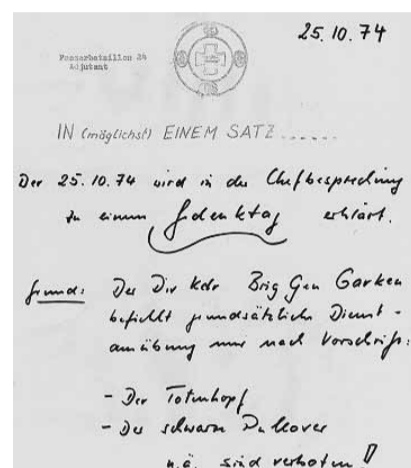 25.10.74
Panzerbataillon 24
Adjutant
IN (möglichst) EINEM SATZ ......
Der 25.10.74 wird in der Chefbesprechung
zu einem Gedenktag erklärt.
Grund: Der Div Kdr Brig Gen Garken
befiehlt grundsätzliche Dienst-
ausübung nur nach Vorschrift:
- Der Totenkopf
- Der schwarze Pullover
u.ä. sind verboten!